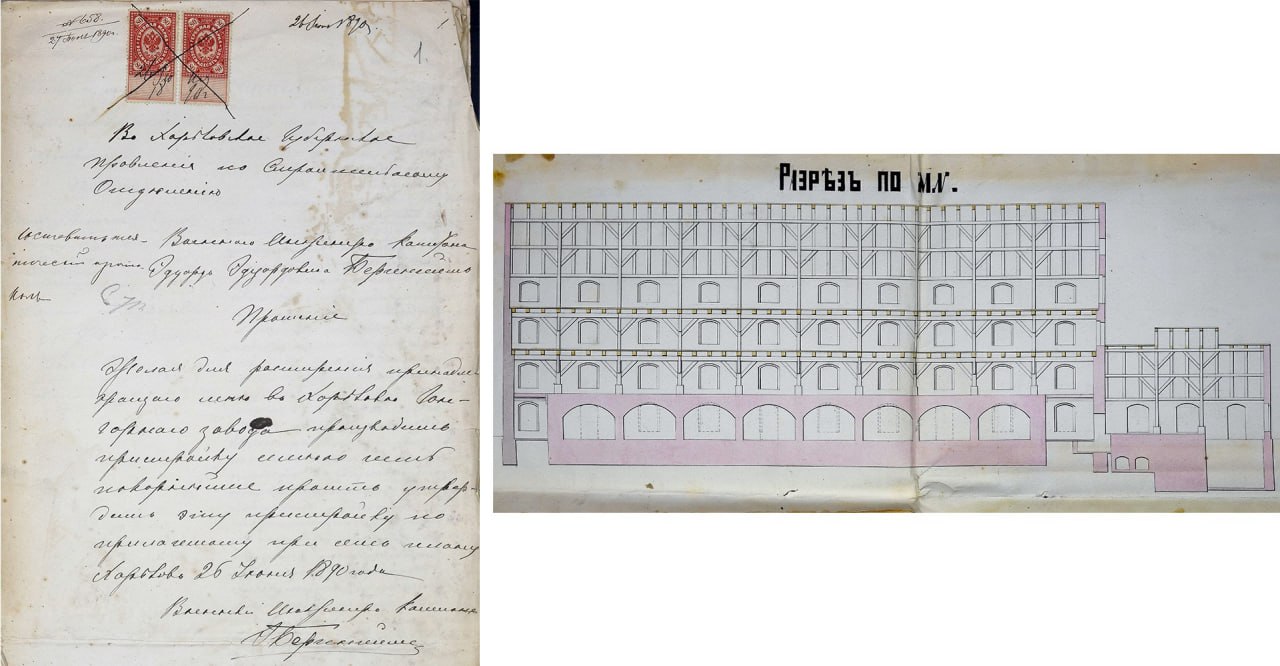 № 658.
27 Июня 1890г.
26 Июня 1890г.
1.
Въ Харьковское Губернское
Правленіе по Строительному
Отдѣленію
Военнаго Инженера Капитана
Эдуарда Эдуардовича Бергенгейма
Прошеніе
Желая для расширенія принадле-
жащаго мнѣ въ Харьковѣ Гон-
чарнаго завода производить
пристройку симъ
покорнѣйше просить утвер-
дить эту пристройку по
прилагаемому при семъ плану
Харьковъ 26 Іюня 1890 года
Военный Инженеръ Капитанъ
Бергенгеймъ
Разрѣзъ по MN.